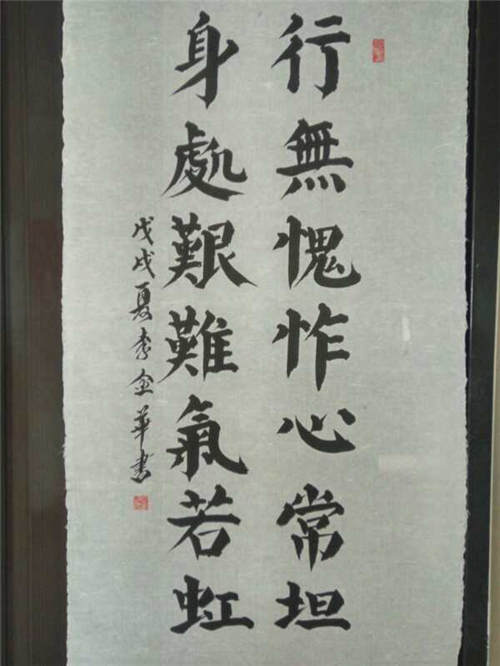 行無愧怍心常坦
身處艱難氣若虹
戊戌夏李金華書